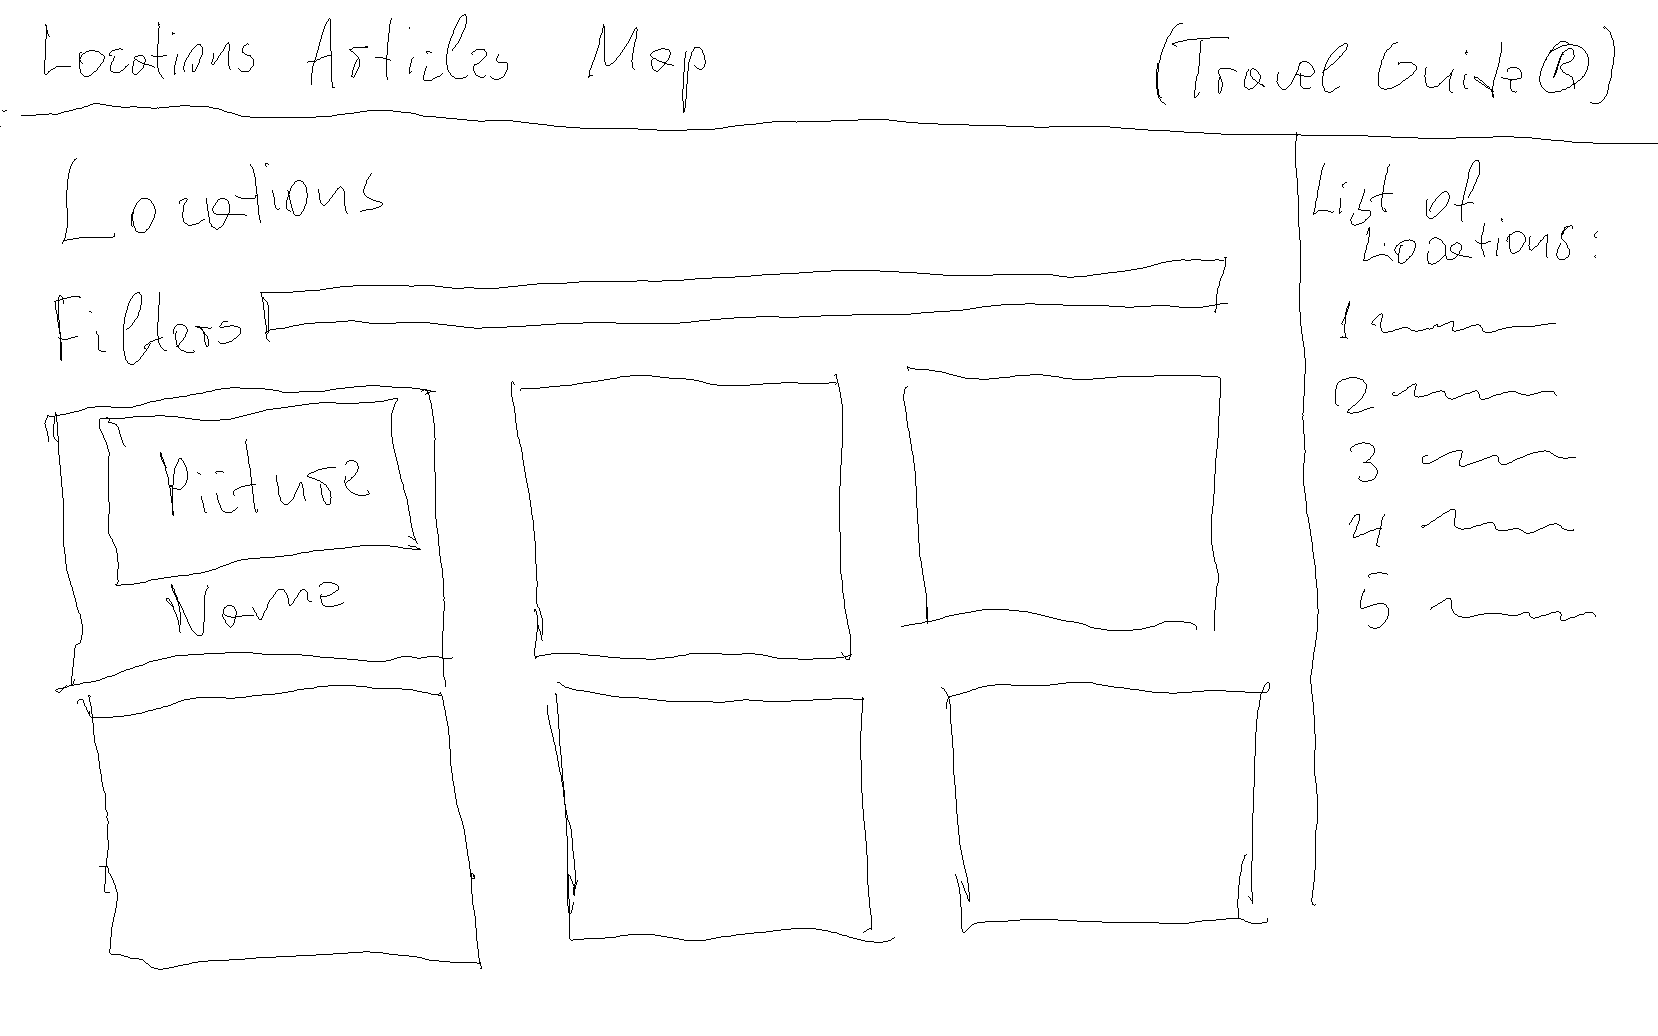 Locations Articles Map (Travel Guide®)
Locations
Filters
Picture
Name
List of
Locations:
1
2
3
4
5